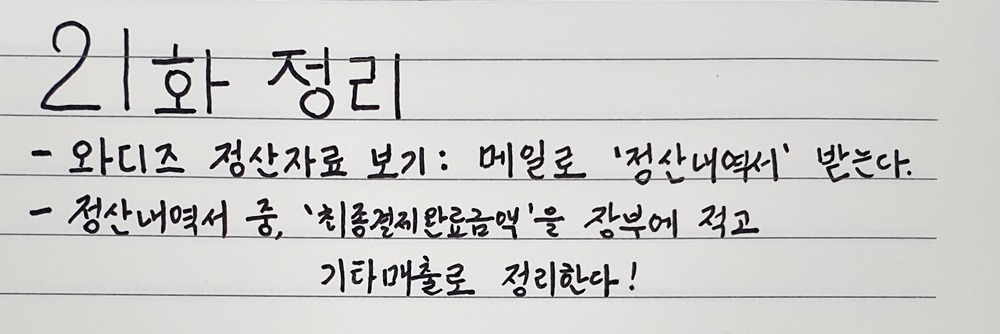 21화 정리
- 와디즈 정산자료 보기: 메일로 '정산내역서' 받는다.
- 정산내역서 중, '최종결제완료금액'을 장부에 적고
기타매출로 정리한다!